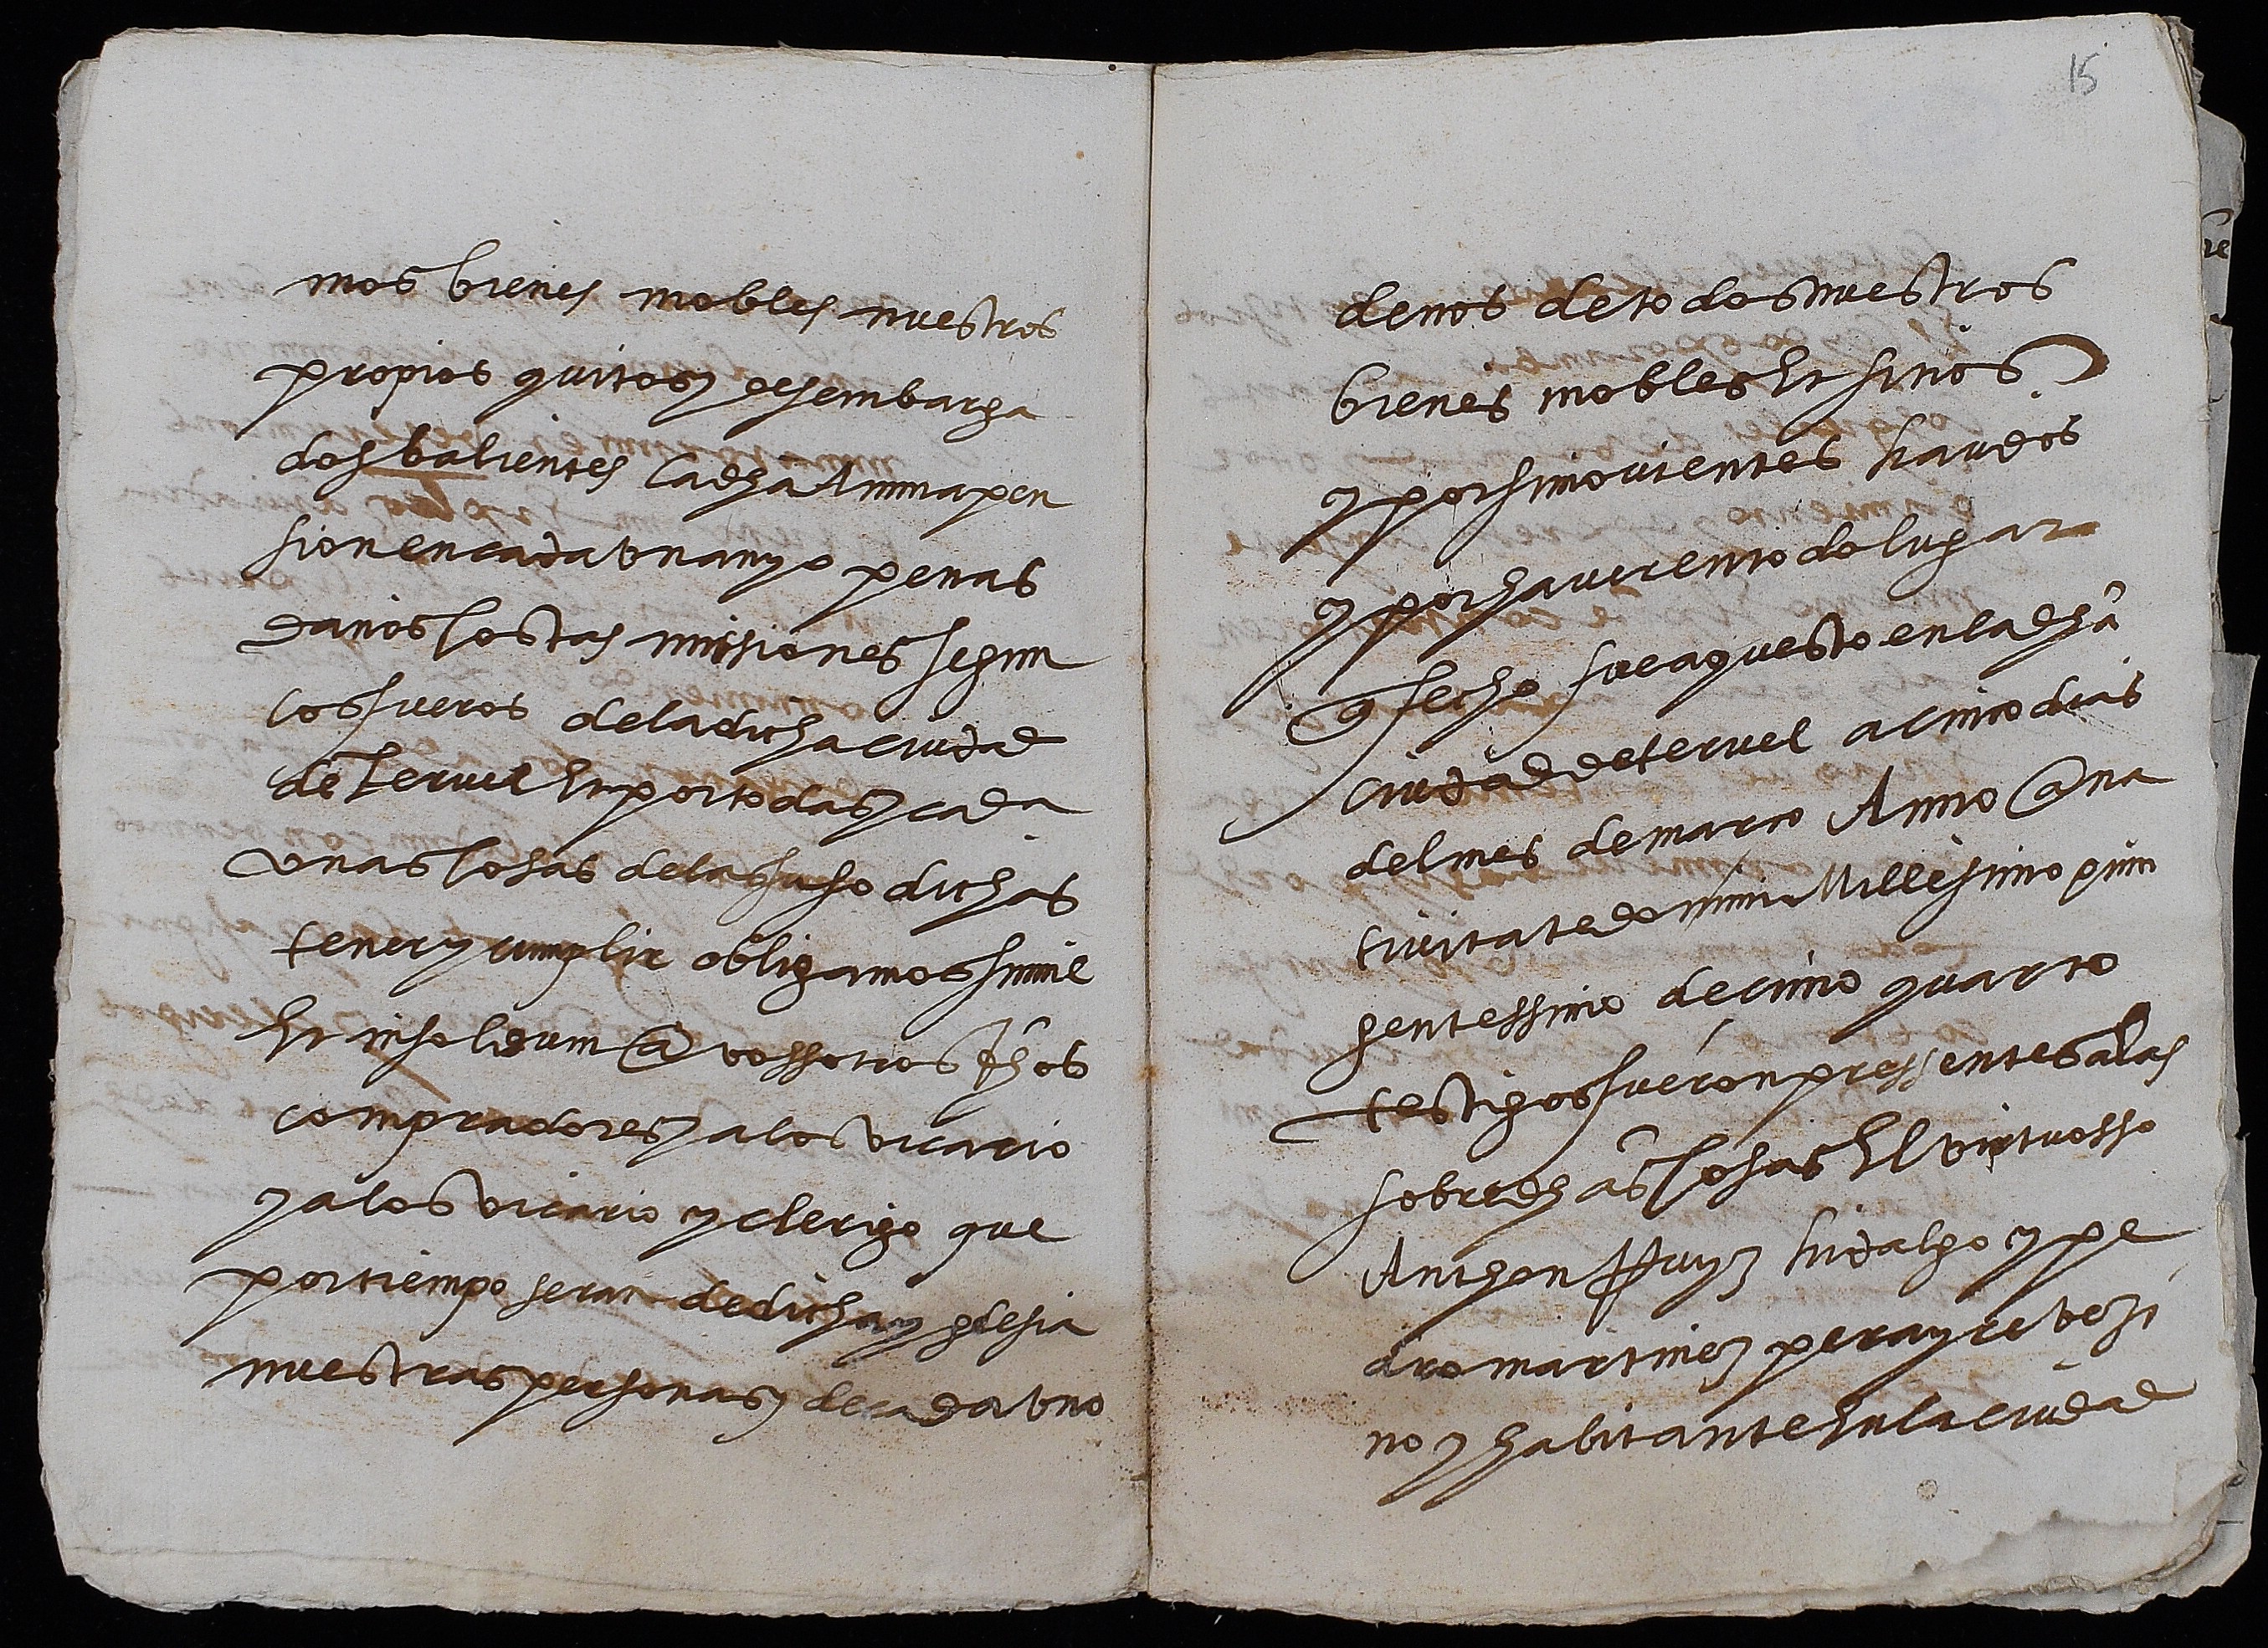 mos bienes mobles nuestros
propios quitos y desembarga
dos balientes la dha Annua pen
sion en cada un anyo penas
danios costas missiones segun
los fueros de la dicha ciudad
de teruel Et por todas y cada
unas cosas de la suso dichas
tener y cumplir obligamos simul
Et insolidum a vossotros dhos
compradores y a los vicario
y a los vicario y clerigo que
por tiempo seran de dicha yglesia
nuestras personas y de cada uno
15
de nos de todos nuestros
bienes mobles Et sitios
y por si movientes havidos
y por haver en todo lugar
q fecho fue aquesto en la dha
ciudad de teruel a cinco dias
del mes de março Anno a na
tivitate domini Millesimo quin
gentessimo decimo quarto
testigos fueron pressentes a las
sobre dhas cosas El virtuosso
Anthon Ruyz hidalgo y pe
dro martinez perayre vezi
no y habitante En la ciudad